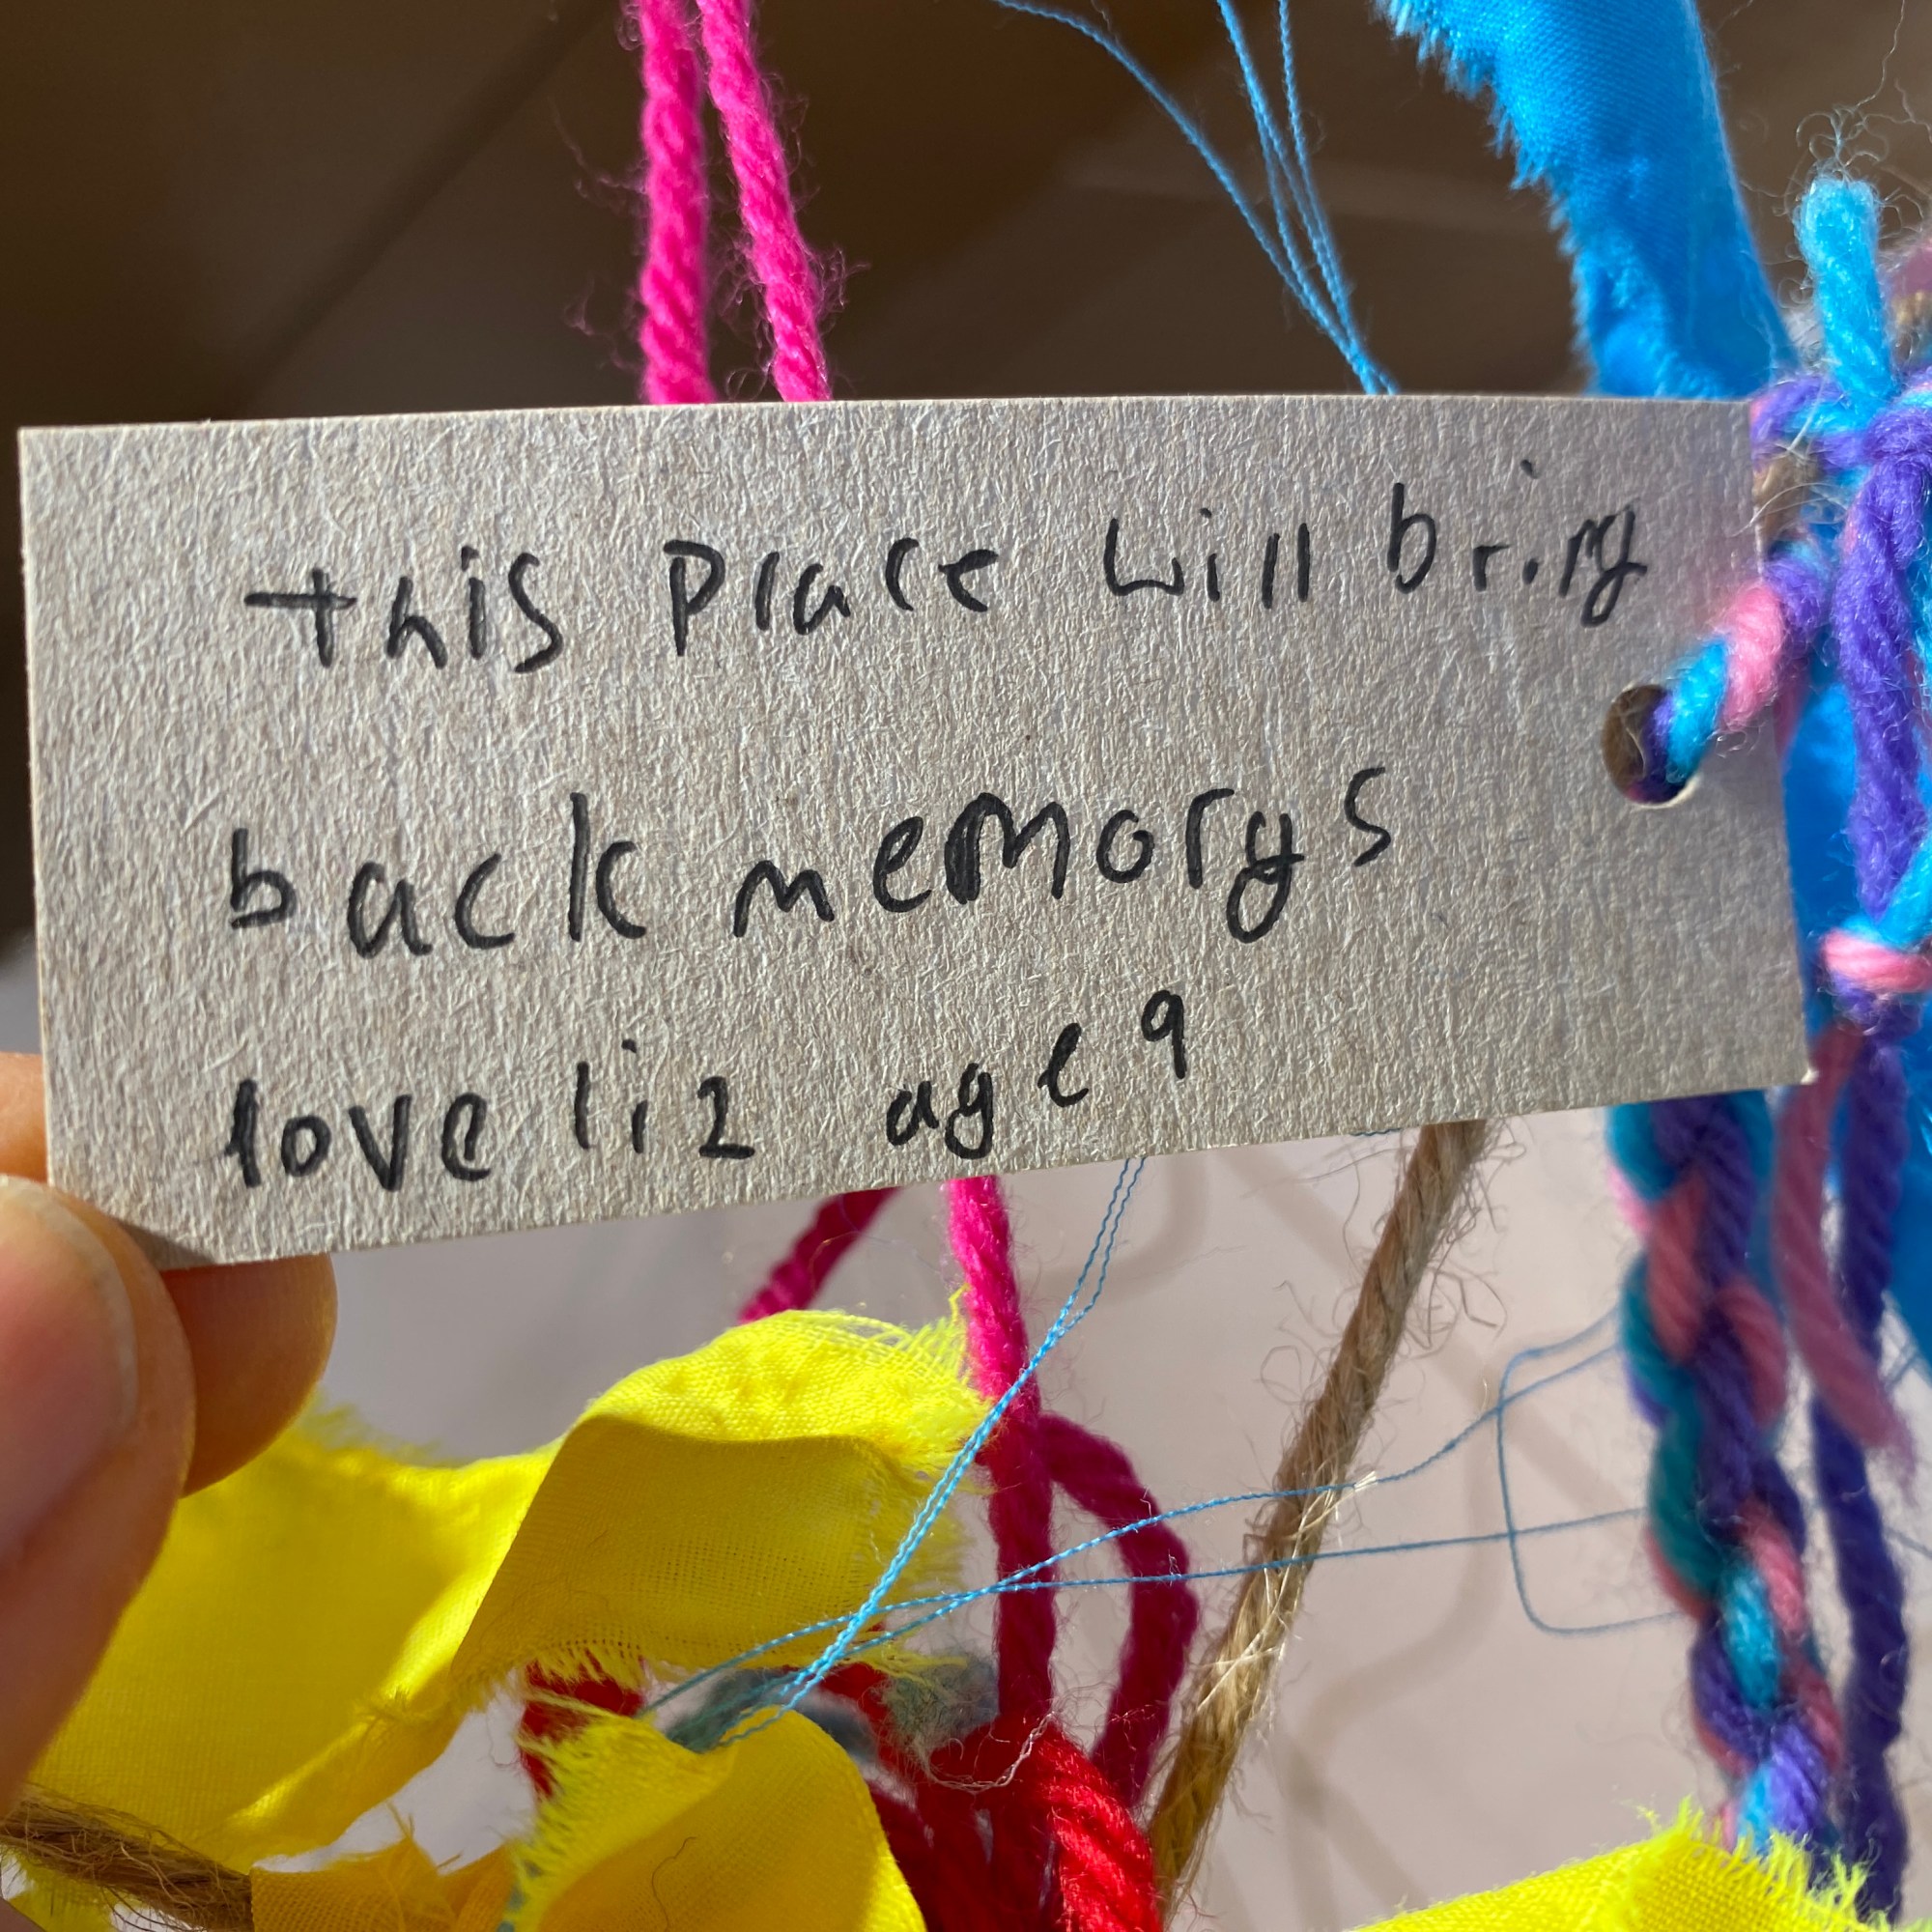 this place will bring
back memorys
love liz age 9